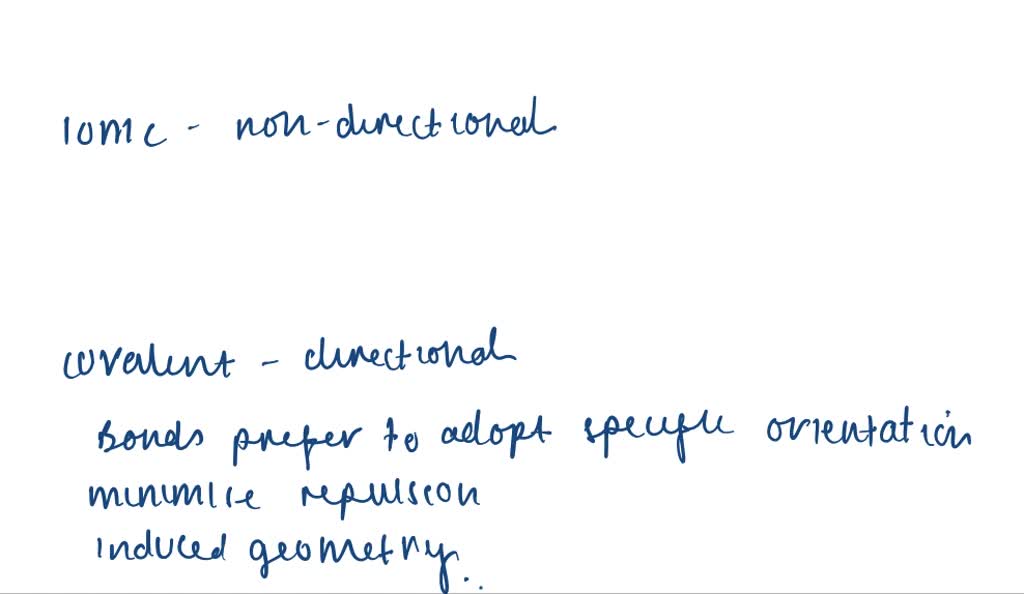 Ionic - non-directional
covalent - directional
Bonds prefer to adopt specific orientation
minimise repulsion
induced geometry..